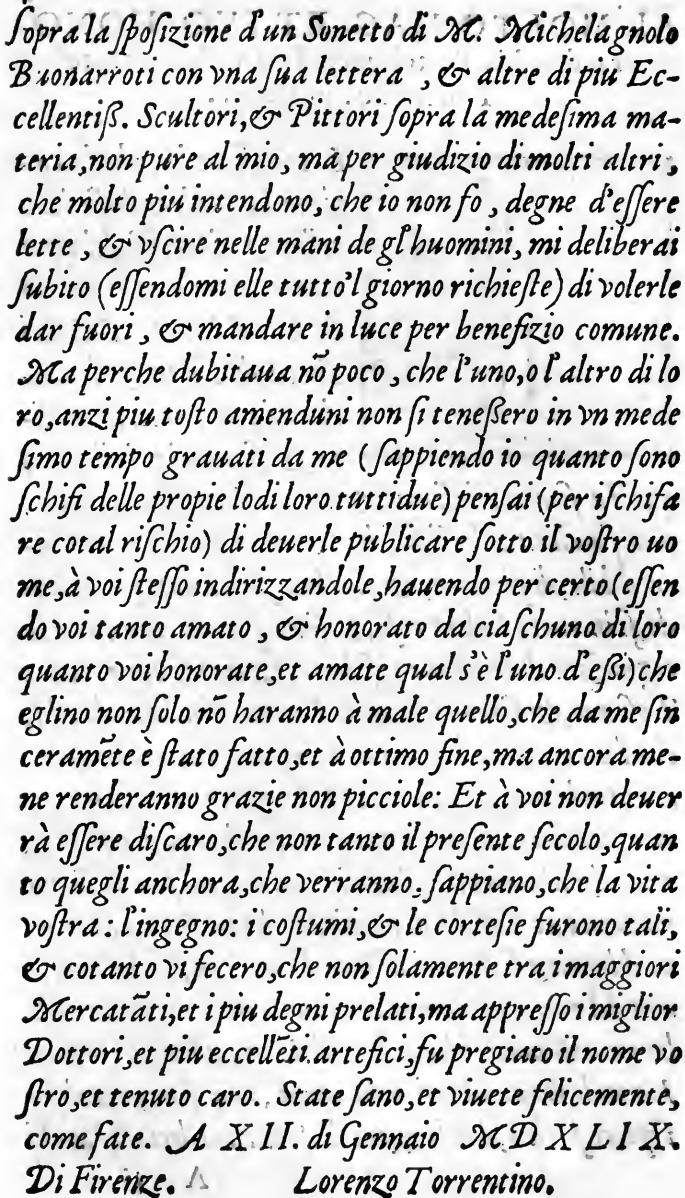 ſopra la ſpoſizione d'un Sonetto di M. Michelagnolo
Buonarroti con vna ſua lettera, & altre di piu Ec-
cellentiß. Scultori, & Pittori ſopra la medeſima ma-
teria, non pure al mio, ma per giudizio di molti altri,
che molto piu intendono, che io non fo, degne d'eſſere
lette, & vſcire nelle mani de gl'huomini, mi deliberai
ſubito (eſſendomi elle tutto'l giorno richieſte) di volerle
dar fuori, & mandare in luce per benefizio comune.
Ma perche dubitaua nõ poco, che l'uno, o l'altro di lo
ro, anzi piu toſto amenduni non ſi teneßero in vn mede
ſimo tempo grauati da me (ſappiendo io quanto ſono
ſchifi delle propie lodi loro tuttidue) penſai (per iſchifa
re cotal riſchio) di deuerle publicare ſotto il voſtro uo
me, à voi ſteſſo indirizzandole, hauendo per certo (eſſen
do voi tanto amato, & honorato da ciaſchuno di loro
quanto voi honorate, et amate qual s'è l'uno d'eßi) che
eglino non ſolo nõ haranno à male quello, che da me ſin
ceramẽte è ſtato fatto, et à ottimo fine, ma ancora me-
ne renderanno grazie non picciole: Et à voi non deuer
rà eſſere diſcaro, che non tanto il preſente ſecolo, quan
to quegli anchora, che verranno, ſappiano, che la vita
voſtra: l'ingegno: i coſtumi, & le corteſie furono tali,
& cotanto vi fecero, che non ſolamente tra i maggiori
Mercatãti, et i piu degni prelati, ma appreſſo i miglior
Dottori, et piu eccellẽti artefici, fu pregiato il nome vo
ſtro, et tenuto caro. State ſano, et viuete felicemente,
come fate. A XII. di Gennaio MDXLIX.
Di Firenze. Lorenzo Torrentino.